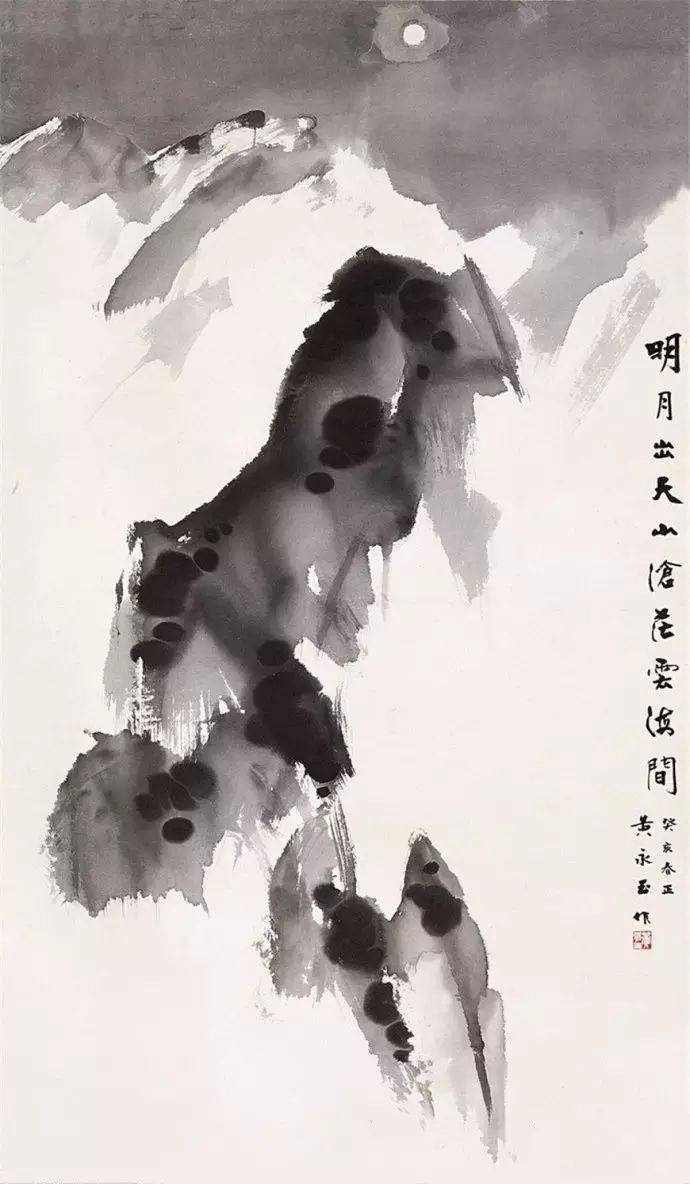 明月出天山滄茫雲海間
癸亥春正
黄永玉作